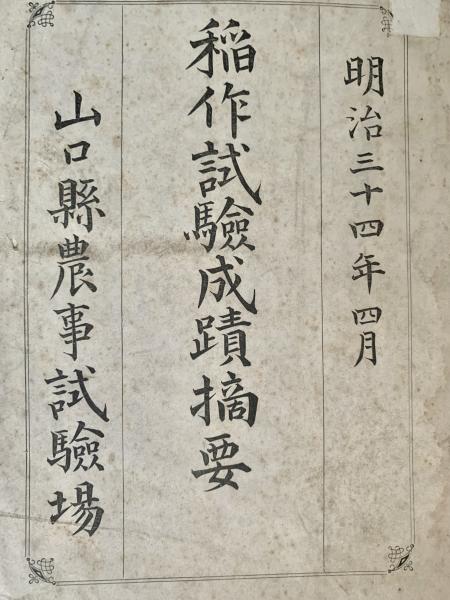 明治三十四年四月
稲作試驗成蹟摘要
山口縣農事試驗場